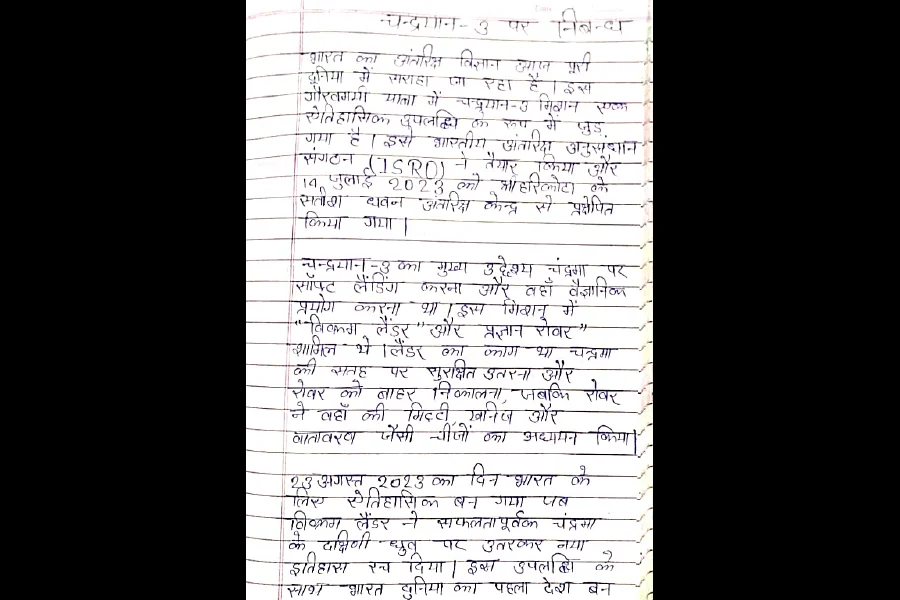 चन्द्रयान-3 पर निबन्ध
भारत का अंतरिक्ष विज्ञान आज पूरी
दुनिया में सराहा जा रहा है। इस
गौरवमयी यात्रा में चन्द्रयान-3 मिशन एक
ऐतिहासिक उपलब्धि के रूप में जुड़
गया है। इसे भारतीय अंतरिक्ष अनुसंधान
संगठन (ISRO) ने तैयार किया और
14 जुलाई 2023 को श्रीहरिकोटा के
सतीश धवन अंतरिक्ष केन्द्र से प्रक्षेपित
किया गया।
चन्द्रयान-3 का मुख्य उद्देश्य चंद्रमा पर
सॉफ्ट लैंडिंग करना और वहाँ वैज्ञानिक
प्रयोग करना था। इस मिशन में
"विक्रम लैंडर" और प्रज्ञान रोवर"
शामिल थे। लैंडर का काम था चन्द्रमा
की सतह पर सुरक्षित उतरना और
रोवर को बाहर निकालना, जबकि रोवर
ने वहाँ की मिट्टी, खनिज और
वातावरण जैसी चीजों का अध्ययन किया।
23 अगस्त 2023 का दिन भारत के
लिए ऐतिहासिक बन गया जब
विक्रम लैंडर ने सफलतापूर्वक चंद्रमा
के दक्षिणी ध्रुव पर उतरकर नया
इतिहास रच दिया। इस उपलब्धि के
साथ भारत दुनिया का पहला देश बन